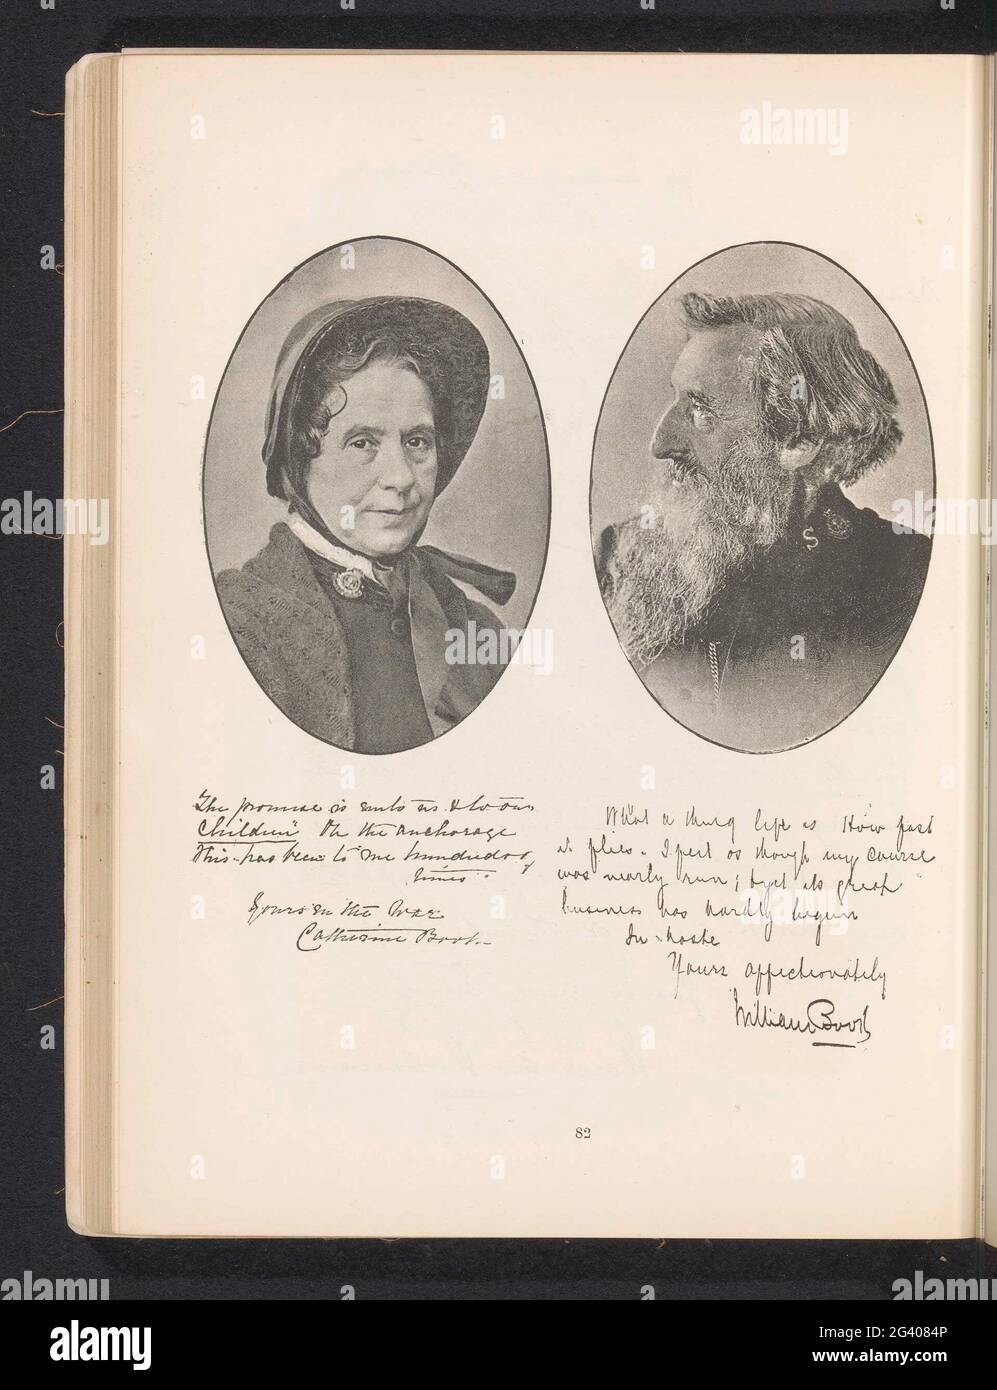 The promise is unto us & to our
Children" Oh the anchorage
this has been to me hundreds of
times.
Yours in the War
Catherine Booth
What a thing life is How fast
it flies. I feel as though my course
was nearly run; & yet its great
business has hardly begun
In haste
Yours affectionately
William Booth
82
alamy
alamy
alamy
alamy
alamy
alamy
alamy
alamy
Image ID: 2G4084P
www.alamy.com